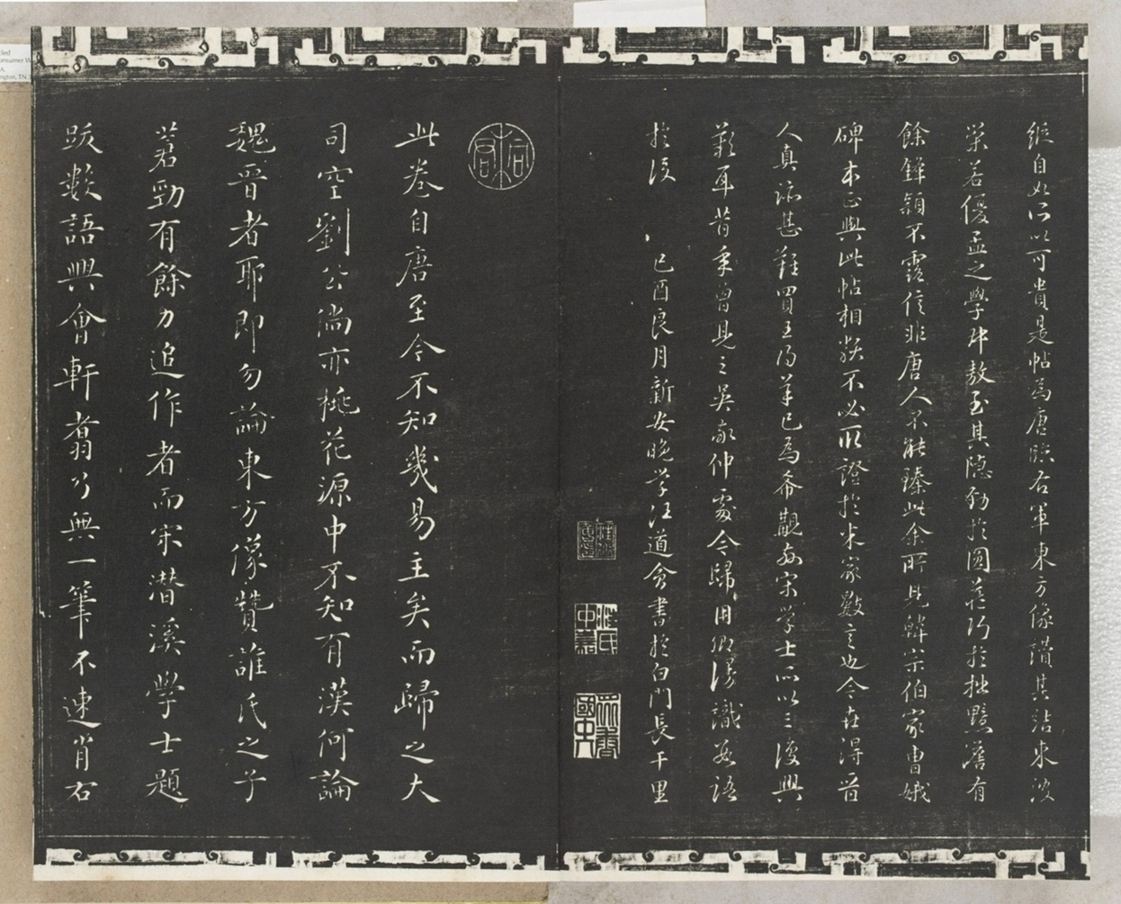 縱自如所以可貴是帖為唐臨右軍東方像讚其沾來波
榮若優孟之學叔敖至其隱勁於圓藏巧於拙黯澹有
餘鋒穎不露信非唐人不能臻此余所見韓宗伯家曹娥
碑本正與此帖相類不必取證於米家數言也今在得晉
人真跡甚難買王得羊已為希覯每宋學士所以三復興
歎耳昔年曾見之吳敬仲處今歸用卿漫識數語
於後
己酉良月新安晚學汪道會書於白門長干里
此卷自唐至今不知幾易主矣而歸之大
司空劉公倘亦桃花源中不知有漢何論
魏晉者耶即勿論東方像贊誰氏之手
蒼勁有餘力追作者而宋潛溪學士題
跋數語興會軒翥乃無一筆不逮肖右